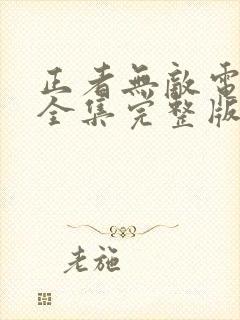 正者無敵電
全集完整版
老施